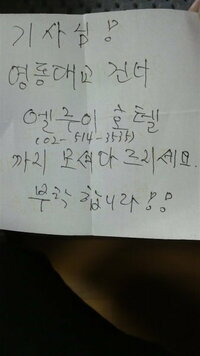 기사님!
영동대교 건너
엘루이 호텔
까지 모셔다 드리세요.
부탁합니다!!